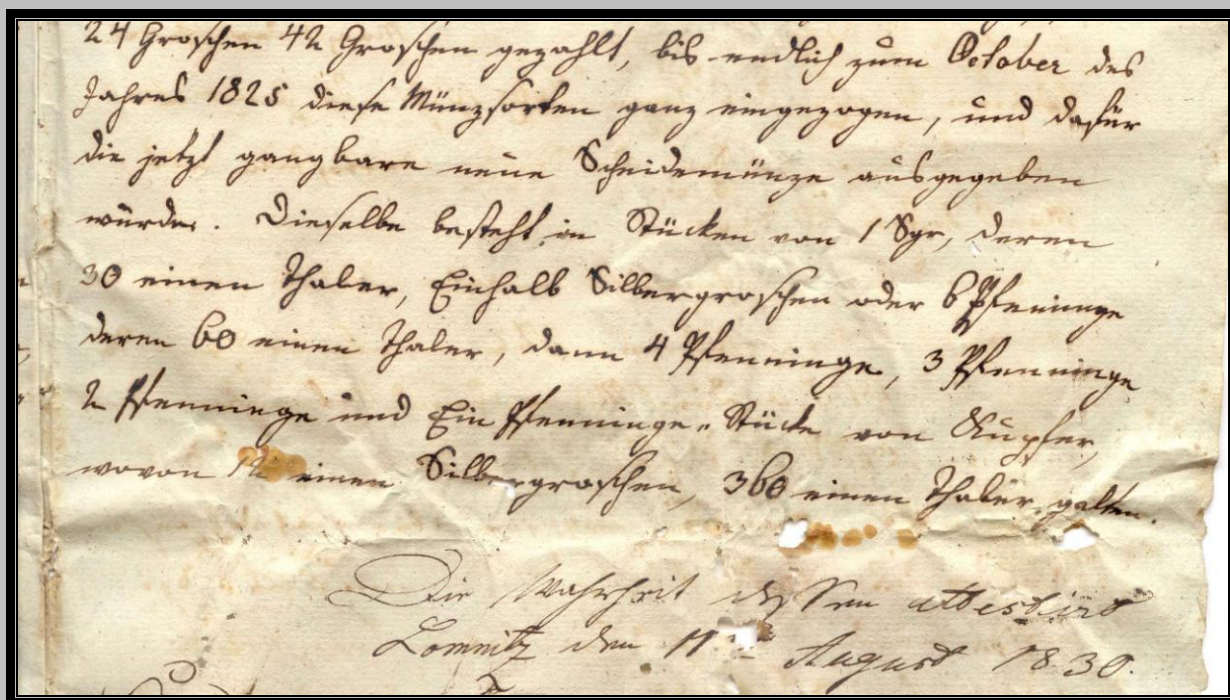 24 Groschen 42 Groschen gezahlt, bis endlich zum October des
Jahres 1825 diese Münzsorten ganz eingezogen, und dafür
die jetzt gangbare neue Scheidemünze ausgegeben
wurde. Dieselbe besteht in Stücken von 1 Sgr, deren
30 einen Thaler, Einhalb Silbergroschen oder 6 Pfenninge
deren 60 einen Thaler, dann 4 Pfenninge, 3 Pfenninge
2 Pfenninge und Ein Pfenninge-Stücke von Kupfer,
wovon 12 einen Silbergroschen, 360 einen Thaler gelten.
Die Wahrheit dessen attestirt
Lomnitz den 11 August 1830.